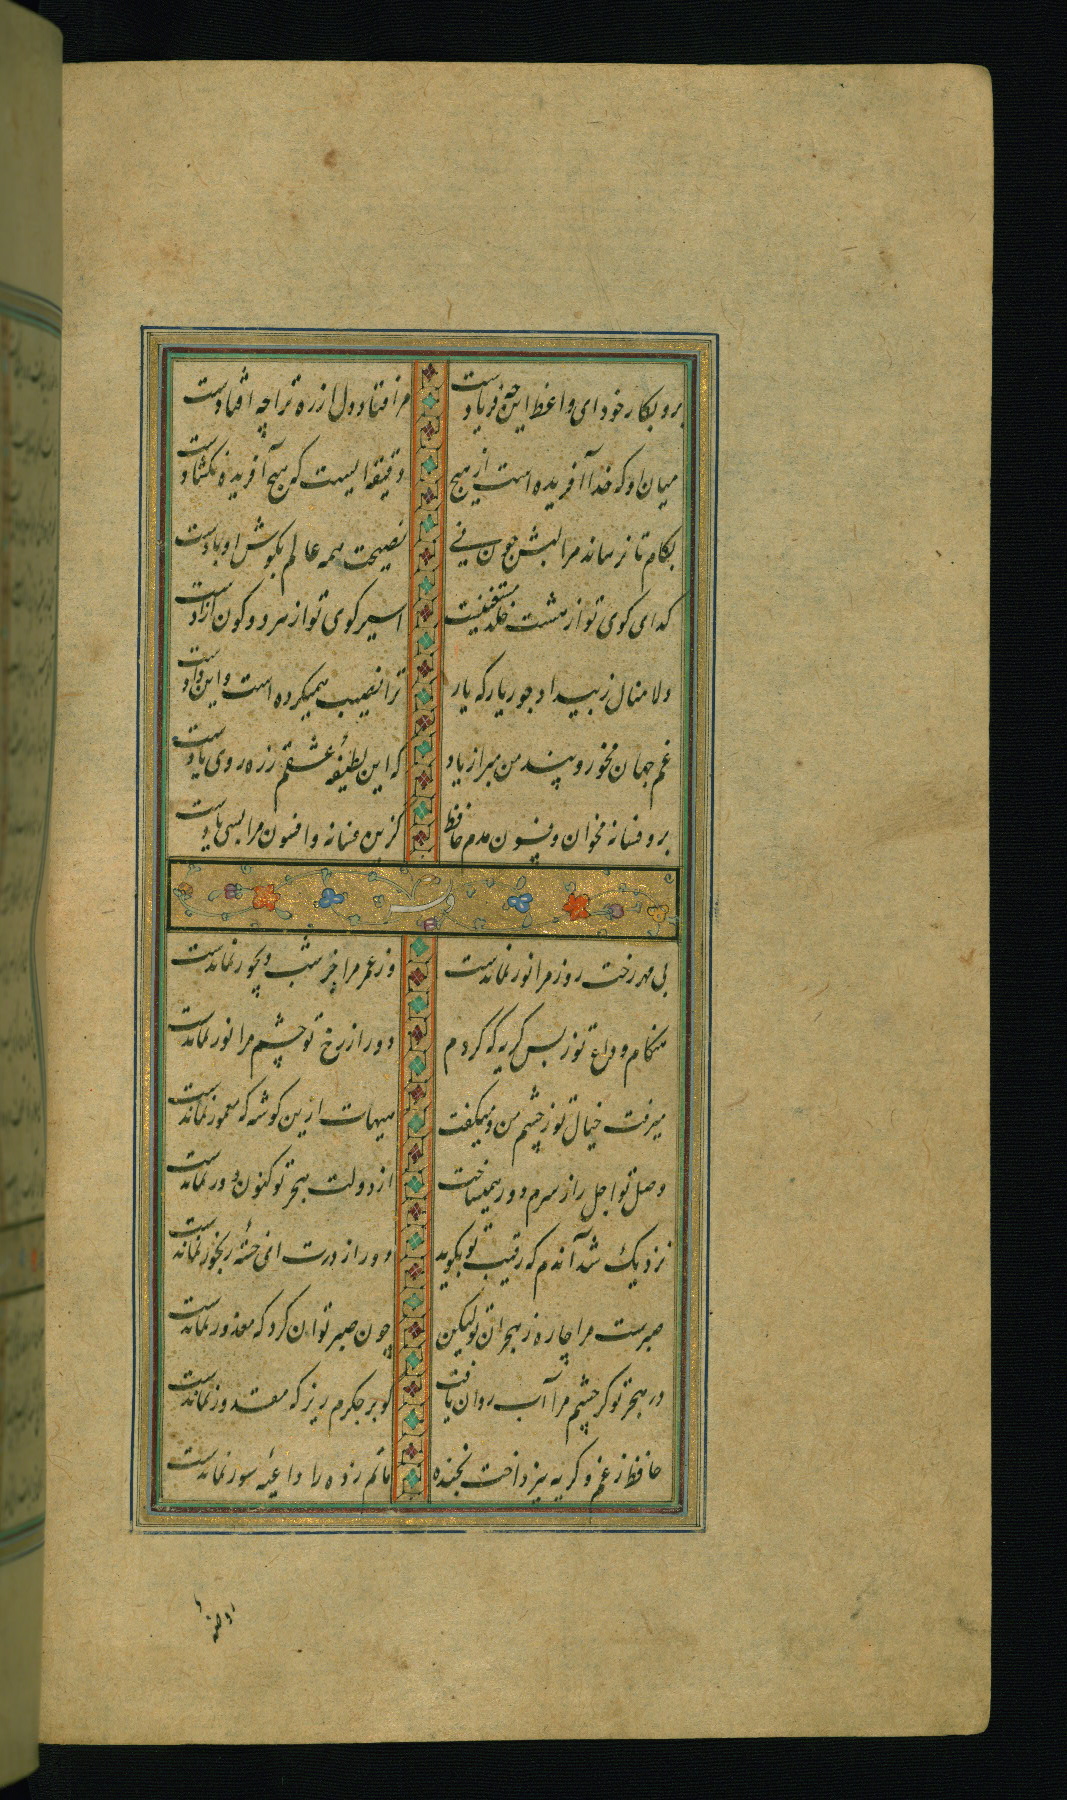 برو بکار خود ای واعظ این چه فریادست مرا فتاد دل از ره ترا چه افتادست
میان او که خدا آفریده است از هیچ دقیقه ایست که هیچ آفریده نکشادست
بکام تا نرساند مرا لبش چون نی نصیحت همه عالم بکوش او بادست
کدای کوی تو از هشت خلد مستغنیست اسیر کوی تو از هر دو کون آزادست
دلا منال ز بیداد و جور یار که یار ترا نصیب همیکرده است و این دادست
غم جهان مخور و پند من مبر از یاد که این لطیفهٔ عشقم ز ره روی یادست
برو فسانه مخوان و فسون مدم حافظ کزین فسانه و افسون مرا بسی یادست
وله
بی مهر رخت روز مرا نور نماندست وز عمر مرا جز شب دیجور نماندست
هنکام وداع تو ز بس کریه که کردم دور از رخ تو چشم مرا نور نماندست
میرفت خیال تو ز چشم من و میکفت هیهات ازین کوشه که معمور نماندست
وصل تو اجل را ز سرم دور همیساخت از دولت هجر تو کنون دور نماندست
نزدیک شد آندم که رقیب تو بکوید دور از درت آن خستهٔ رنجور نماندست
صبرست مرا چاره ز هجران تو لیکن چون صبر توان کرد که مقدور نماندست
در هجر تو کر چشم مرا آب روان یافت کو بر جکرم ریز که معذور نماندست
حافظ ز غم و کریه نپرداخت بخنده ماتم زده را داعیهٔ سور نماندست